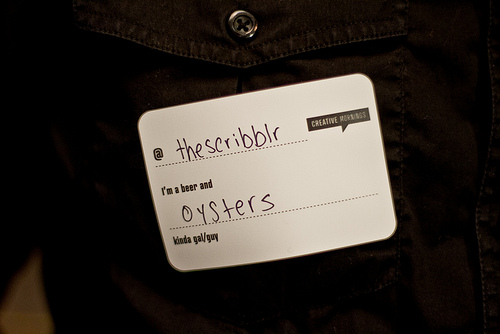 CREATIVE MORNINGS
@ thescribblr
I'm a beer and
oysters
kinda gal/guy